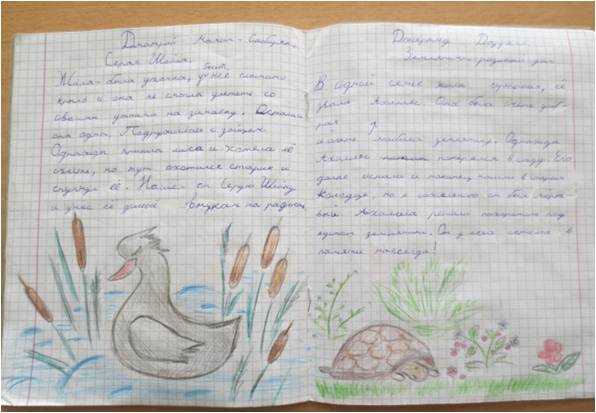 Дмитрий Мамин-Сибиряк
Серая Шейка.
Жила-была уточка, у неё было сломано
крыло и она не смогла улететь со
своими утками на зимовку. Осталась
она одна. Подружилась с зайцем.
Однажды пришла лиса и хотела её
съесть, но тут охотился старик и
спугнул её. Нашёл он Серую Шейку
и унёс её домой внукам на радость.
Джеральд Даррелл.
В одной семье жила черепаха, её
звали Ахиллес. Она была очень
и очень любила землянику. Однажды
Ахиллес потерялся в саду. Его
долго искали и наконец нашли в старом
колодце, но к сожалению он был
Ахиллеса решили похоронить под
кустом земляники. Он у всех остался в
памяти навсегда!